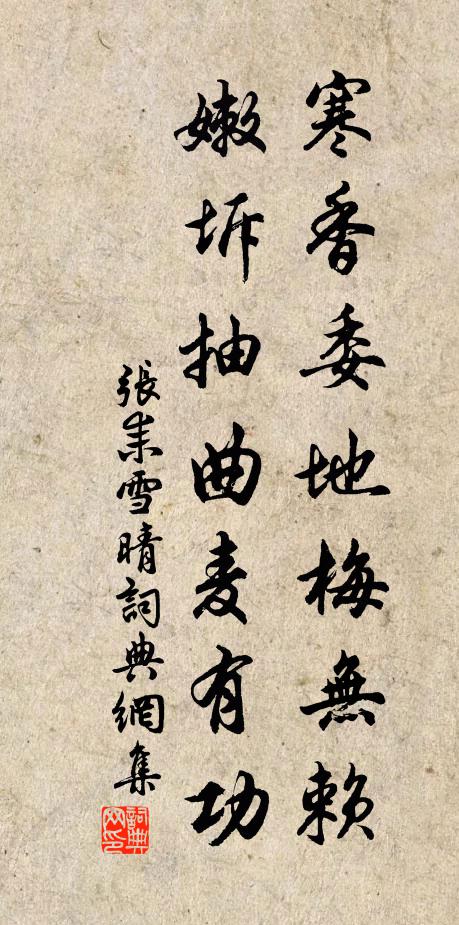 寒香委地梅無賴
嫩坼抽曲麦有功
張耒雪晴詞典網集
詞典網印